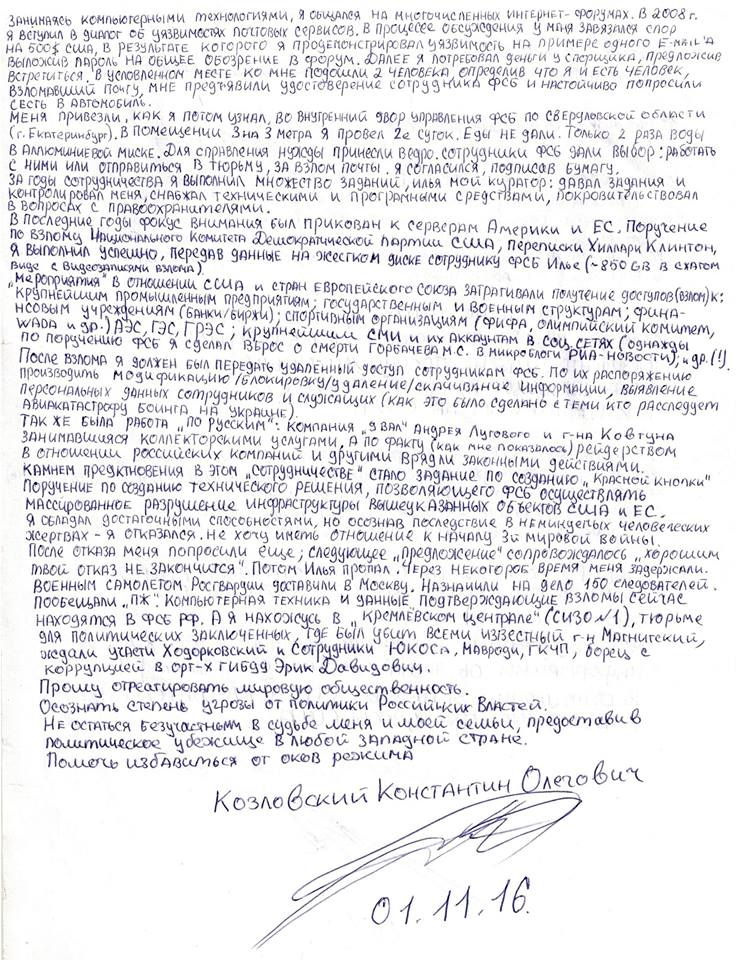 Занимаясь компьютерными технологиями, я общался на многочисленных интернет-форумах. В 2008 г.
я вступил в диалог об уязвимостях почтовых сервисов. В процессе обсуждения у меня завязался спор
на 500$ США, в результате которого я продемонстрировал уязвимость на примере одного E-mail'а
выложив пароль на общее обозрение в форум. Далее я потребовал деньги у спорщика, предложив
встретиться. В условленном месте ко мне подошли 2 человека определив что я и есть человек,
взломавший почту, мне предъявили удостоверение сотрудника ФСБ и настойчиво попросили
сесть в автомобиль.
Меня привезли, как я потом узнал, во внутренний двор управления ФСБ по Свердловской области
(г. Екатеринбург). В помещении 3 на 3 метра я провел 2е суток. Еды не дали. Только 2 раза воды
в аллюминиевой миске. Для справления нужды принесли ведро. Сотрудники ФСБ дали выбор: работать
с ними или отправиться в тюрьму, за взлом почты. Я согласился, подписав бумагу.
За годы сотрудничества я выполнил множество заданий, Илья мой куратор: давал задания и
контролировал меня, снабжал техническими и програмными средствами, покровительствовал
в вопросах с правоохранителями.
В последние годы фокус внимания был прикован к серверам Америки и ЕС. Поручение
по взлому Национального Комитета Демократической партии США, переписки Хиллари Клинтон,
я выполнил успешно, передав данные на жёстком диске сотруднику ФСБ Илье (~850 GB в сжатом
виде с видеозаписями взлома)
„Мероприятия" в отношении США и стран Европейского Союза затрагивали получение доступов (взлом) к:
крупнейшим промышленным предприятиям; государственным и военным структурам; фина-
нсовым учреждениям (банки/биржи); спортивным организациям (ФИФА, олимпийский комитет,
WADA и др.) АЭС, ГЭС, ГРЭС; крупнейшим СМИ и их аккаунтам в соц. сетях (однажды
по поручению ФСБ я сделал вброс о смерти Горбачева М.С. в микроблоги РИА-Новости); и др. (!).
После взлома я должен был передать удалённый доступ сотрудникам ФСБ. По их распоряжению
производить модификацию/блокировку/удаление/скачивание информации, выявление
персональных данных сотрудников и служащих (как это было сделано с теми кто расследует
авиакатастрофу боинга на Украине).
Так же была работа „по русским": компания „9 вал" Андрея Лугового и г-на Ковтуна
занимавшиеся коллекторскими услугами, а по факту (как мне показалось) рейдерством
в отношении российских компаний и другими врядли законными действиями.
Камнем предктновения в этом „сотрудничестве" стало задание по созданию „Красной кнопки"
Поручение по созданию технического решения, позволяющего ФСБ осуществлять
массированное разрушение инфраструктуры вышеуказанных объектов США и ЕС.
Я обладал достаточными способностями, но осознав последствие в неминуемых человеческих
жертвах - я отказался. Не хочу иметь отношение к началу 3й мировой войны.
После отказа меня попросили ещё; следующее „предложение" сопровождалось „хорошим
твой отказ не закончится". Потом Илья пропал. Через некотороб время меня задержали.
Военным самолётом Росгвардии доставили в Москву. Назначили на дело 150 следователей.
Пообещали „ПЖ". Компьютерная техника и данные подтверждающие взломы сейчас
находятся в ФСБ РФ. А я нахожусь в „Кремлёвском централе" (СИЗО №1), тюрьме
для политических заключенных, где был убит всеми известный г-н Магнитский,
ждали участи Ходорковский и сотрудники ЮКОСа, Мавроди, ГКЧП, борец с
коррупцией в орг-х ГИБДД Эрик Давидович.
Прошу отреагировать мировую общественность.
Осознать степень угрозы от политики Российских Властей.
Не остаться безучастным в судьбе меня и моей семьи, предоставив
политическое убежище в любой западной стране.
Помочь избавиться от оков режима
Козловский Константин Олегович
01.11.16.